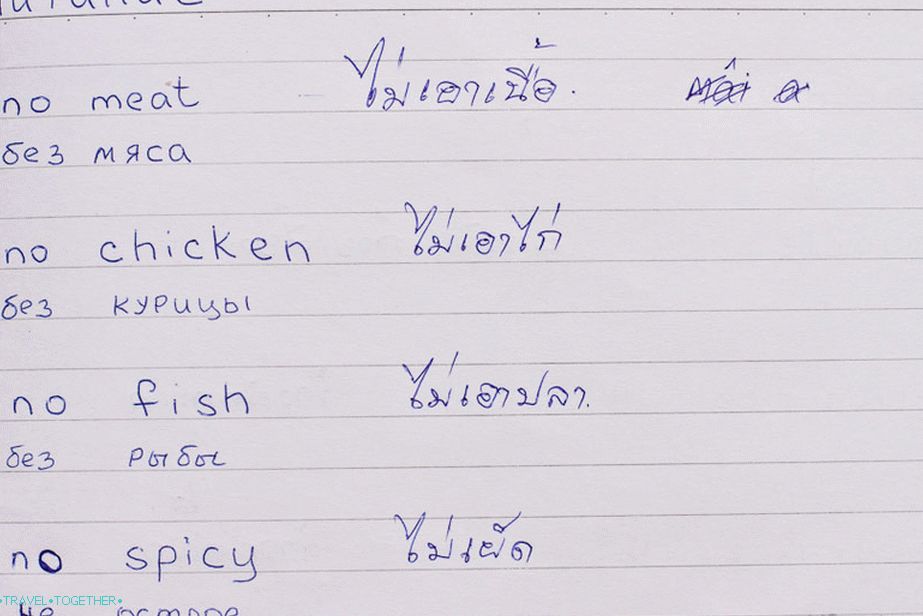 no meat ไม่เอาเนื้อ.
без мяса
no chicken ไม่เอาไก่
без курицы
no fish ไม่เอาปลา.
без рыбы
no spicy ไม่เผ็ด
не острое
•TRAVEL•TOGETHER•